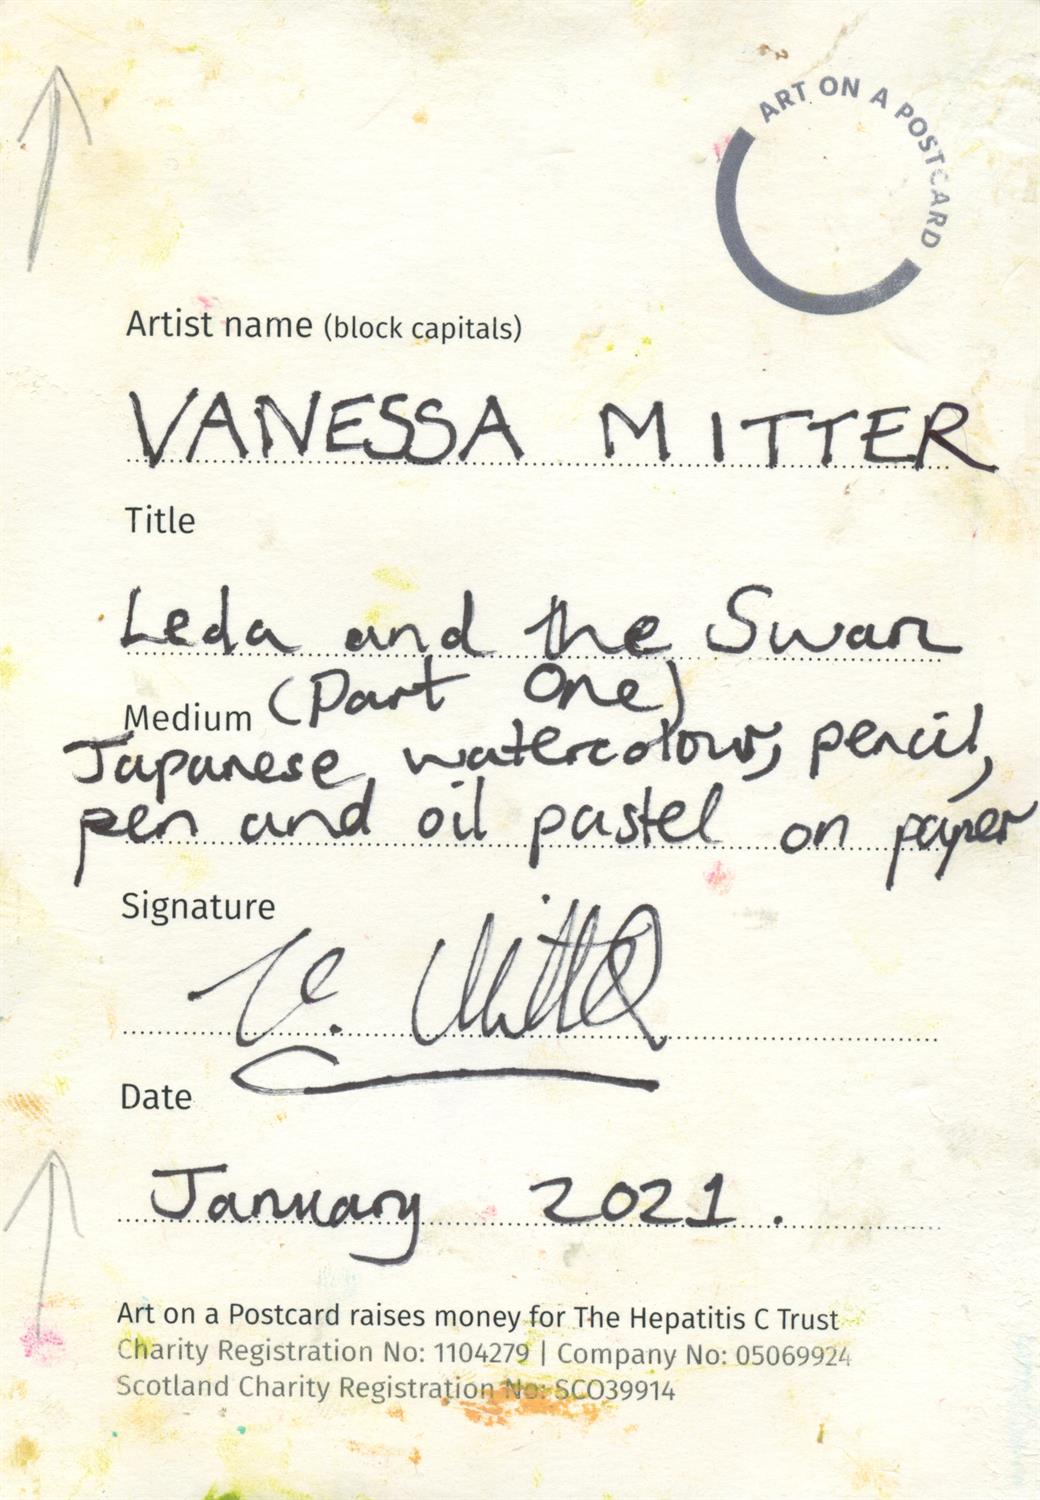 ART ON A POSTCARD
Artist name (block capitals)
VANESSA MITTER
Title
Leda and the Swan
(Part One)
Medium
Japanese watercolour, pencil,
pen and oil pastel on paper
Signature
V. Mitter
Date
January 2021.
Art on a Postcard raises money for The Hepatitis C Trust
Charity Registration No: 1104279 | Company No: 05069924
Scotland Charity Registration No: SCO39914